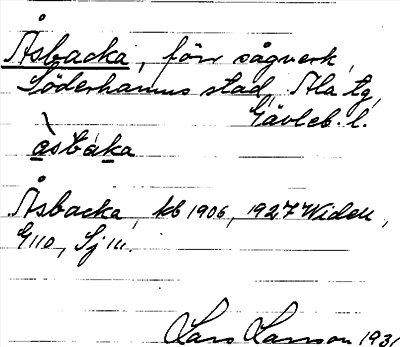 Åsbacka, förr sågverk,
Söderhamns stad, Ala tg,
Gävleb. l.
àsbáka
Åsbacka, kb 1906, 1927 Widell,
G110, Sj 111.
Lars Larsson 1931